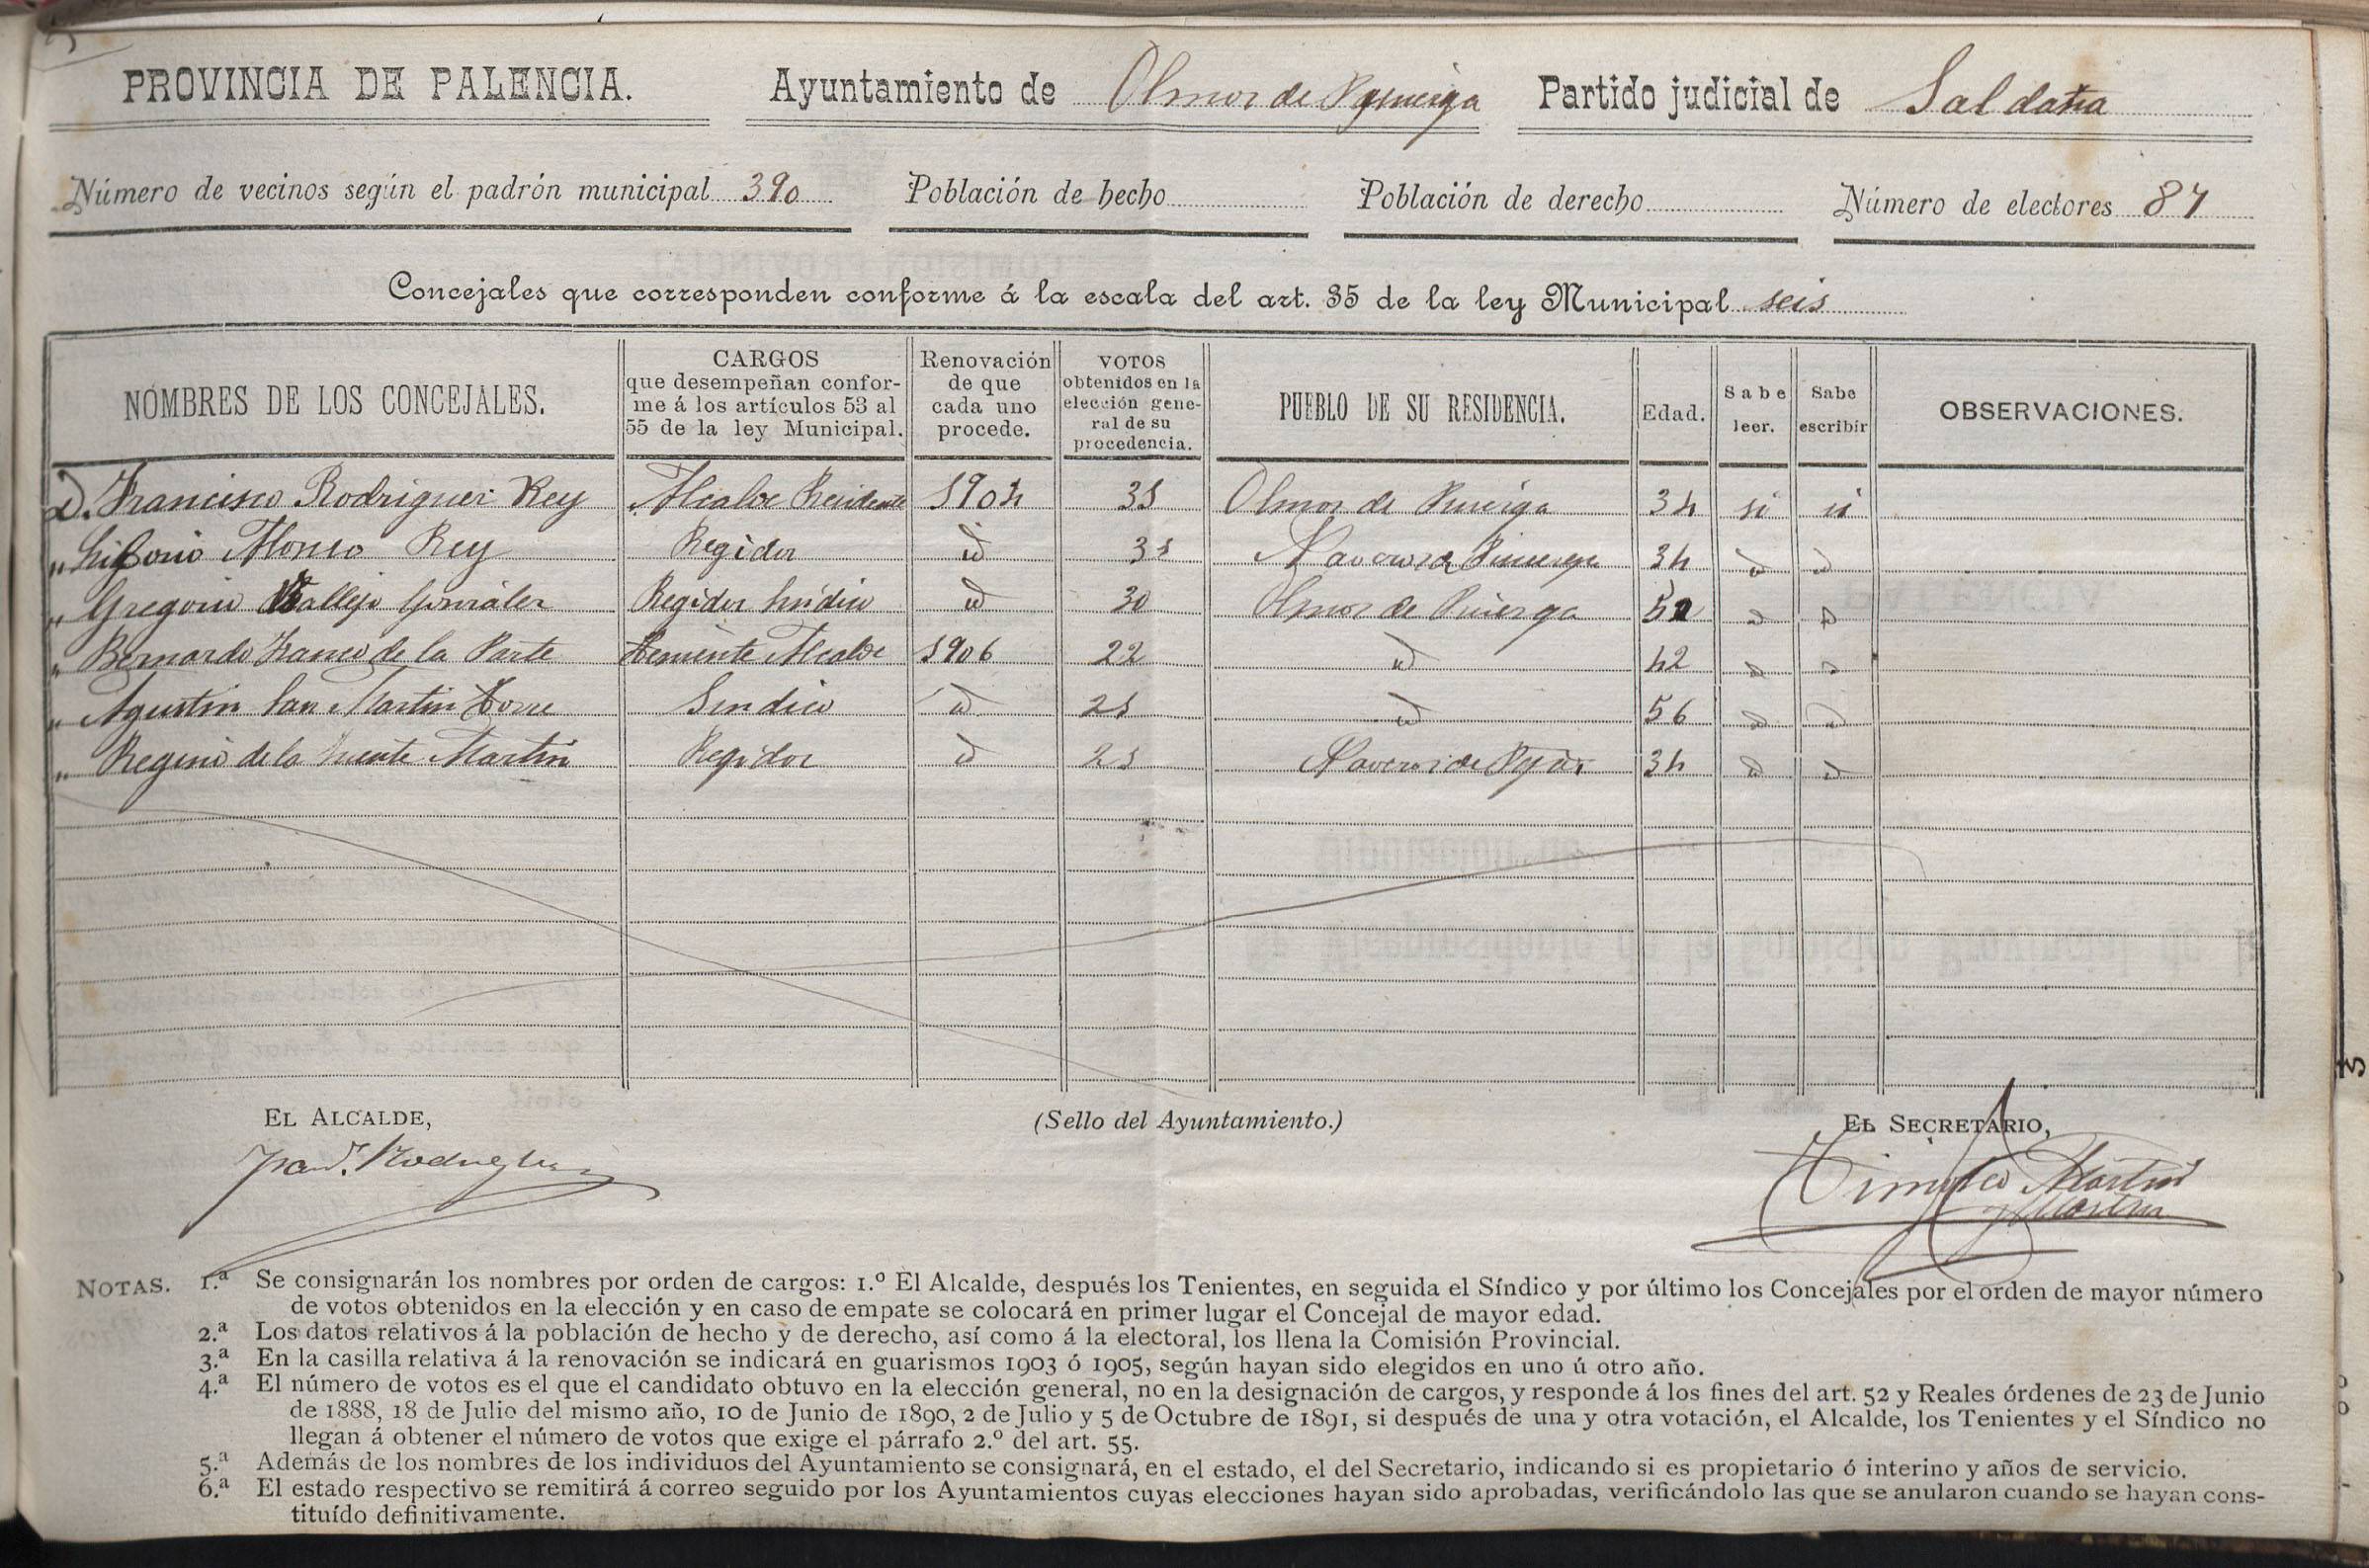 PROVINCIA DE PALENCIA. Ayuntamiento de Olmos de Partido judicial de Saldaña
Número de vecinos según el padrón municipal 390 Población de hecho Población de derecho Número de electores 87
Concejales que corresponden conforme á la escala del art. 35 de la ley Municipal seis
NOMBRES DE LOS CONCEJALES.
CARGOS
que desempeñan confor-
me á los artículos 53 al
55 de la ley Municipal.
Renovación
de que
cada uno
procede.
VOTOS
obtenidos en la
elección gene-
ral de su
procedencia.
PUEBLO DE SU RESIDENCIA.
Edad.
Sabe
leer.
Sabe
escribir
OBSERVACIONES.
D. Francisco Rodriguez Rey Alcalde Presidente 1904 31 Olmos de Pisuerga 34 si si
" Alonso Rey Regidor id 31 Naveros de Pisuerga 34 id id
" Gregorio Vallejo Gonzalez Regidor Sindico id 30 Olmos de Pisuerga 52 id id
" Bernardo Franco de la Parte Teniente Alcalde 1906 22 id 42 id id
" Agustin San Martin Torre Sindico id 21 id 56 id id
" Regino de la Fuente Martin Regidor id 21 Naveros de 34 id id
EL ALCALDE, (Sello del Ayuntamiento.) EL SECRETARIO,
Rodriguez
Timoteo Martin
y Martin
NOTAS. 1.ª Se consignarán los nombres por orden de cargos: 1.º El Alcalde, después los Tenientes, en seguida el Síndico y por último los Concejales por el orden de mayor número
de votos obtenidos en la elección y en caso de empate se colocará en primer lugar el Concejal de mayor edad.
2.ª Los datos relativos á la población de hecho y de derecho, así como á la electoral, los llena la Comisión Provincial.
3.ª En la casilla relativa á la renovación se indicará en guarismos 1903 ó 1905, según hayan sido elegidos en uno ú otro año.
4.ª El número de votos es el que el candidato obtuvo en la elección general, no en la designación de cargos, y responde á los fines del art. 52 y Reales órdenes de 23 de Junio
de 1888, 18 de Julio del mismo año, 10 de Junio de 1890, 2 de Julio y 5 de Octubre de 1891, si después de una y otra votación, el Alcalde, los Tenientes y el Síndico no
llegan á obtener el número de votos que exige el párrafo 2.º del art. 55.
5.ª Además de los nombres de los individuos del Ayuntamiento se consignará, en el estado, el del Secretario, indicando si es propietario ó interino y años de servicio.
6.ª El estado respectivo se remitirá á correo seguido por los Ayuntamientos cuyas elecciones hayan sido aprobadas, verificándolo las que se anularon cuando se hayan cons-
tituído definitivamente.